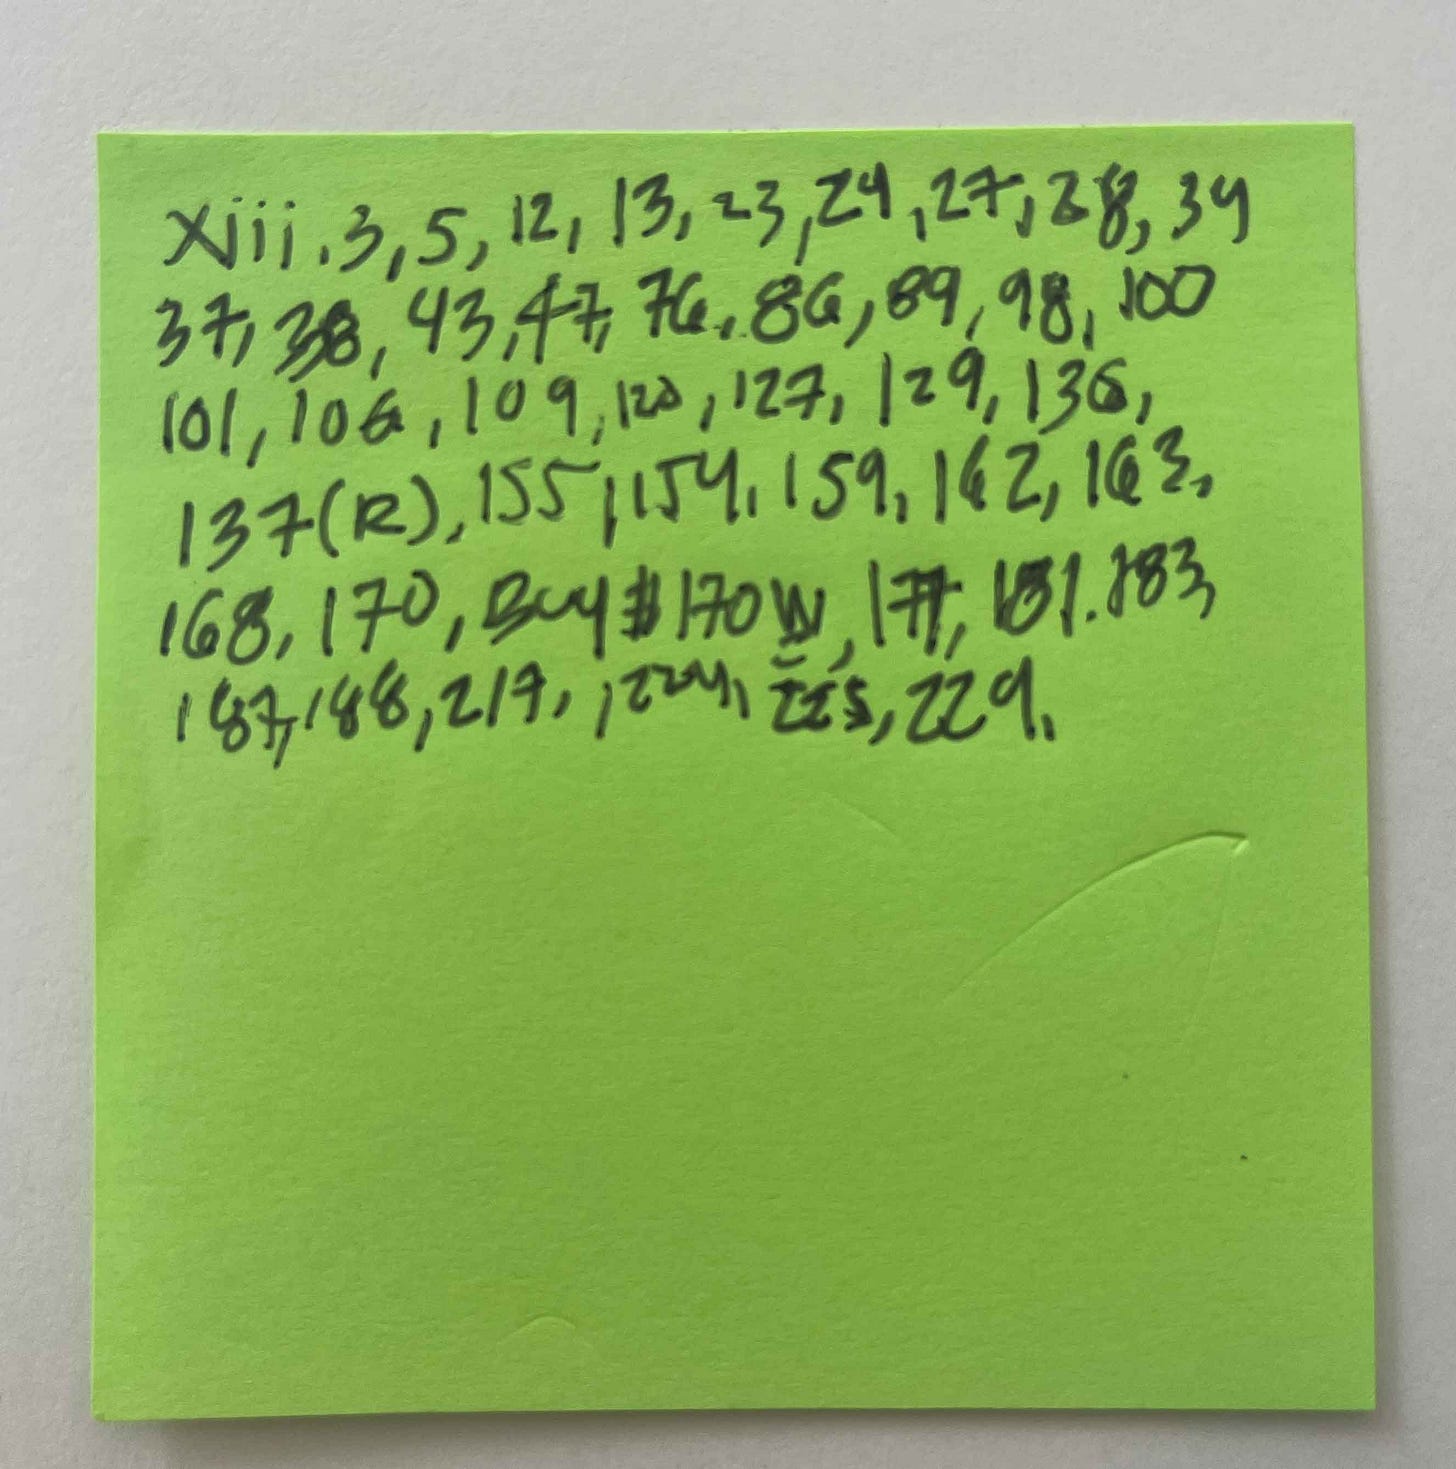 xiii, 3, 5, 12, 13, 23, 24, 27, 28, 34
37, 38, 43, 47, 76, 86, 89, 98, 100
101, 106, 109, 120, 127, 129, 136,
137(R), 155, 154, 159, 162, 163,
168, 170, Buy $170 177, 181. 183,
187, 188, 217, , 224, 225, 229.